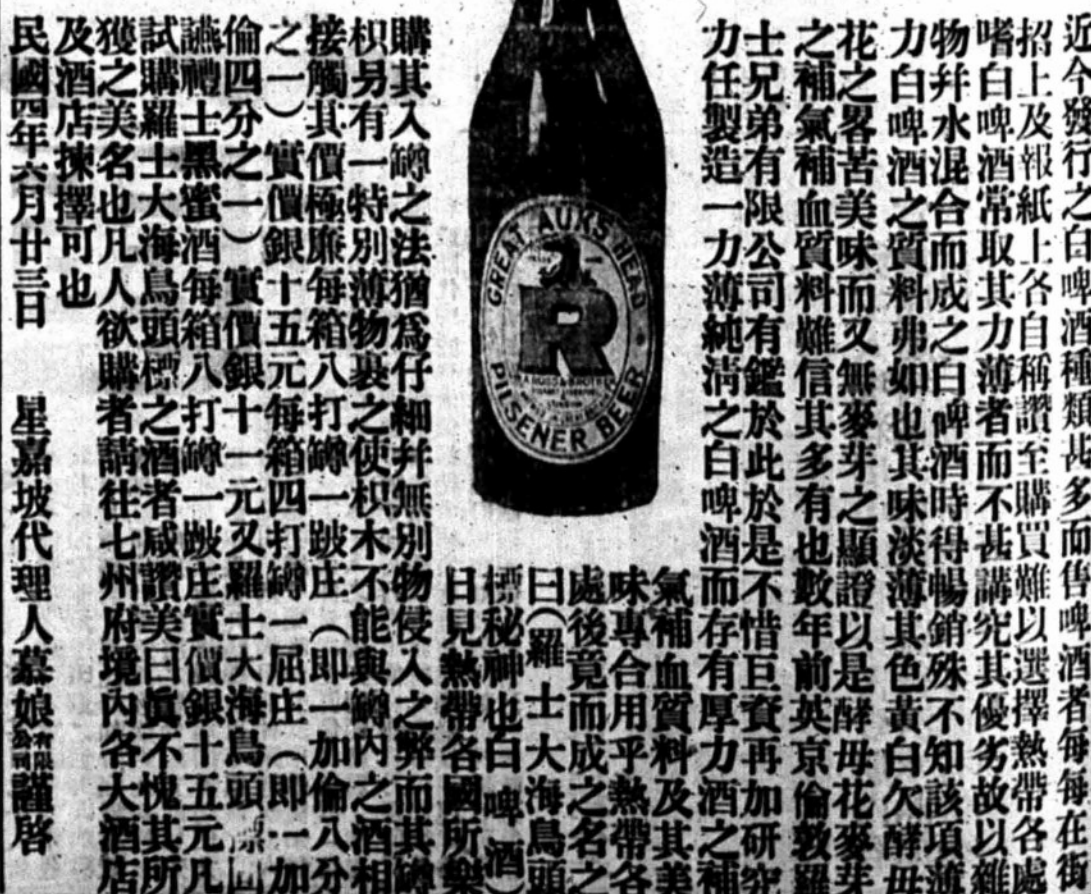 近今發行之白啤酒種類甚多而售啤酒者每每在街
招上及報紙上各自稱讚至購買難以選擇熱帶各處
嗜白啤酒常取其力薄者而不甚講究其優劣故以雜
物并水混合而成之白啤酒時得暢銷殊不知該項薄
力白啤酒之質料弗如也其味淡薄其色黃白欠酵母
花之畧苦美味而又無麥芽之顯證以是酵母花麥芽
之補氣補血質料難信其多有也數年前英京倫敦羅
士兄弟有限公司有鑑於此於是不惜巨資再加研究
力任製造一力薄純淸之白啤酒而存有厚力酒之補
氣補血質料及其美
味專合用乎熱帶各
處後竟而成之名之
曰(羅士大海鳥頭
標秘神也白啤酒)
日見熱帶各國所樂
購其入罇之法猶爲仔細幷無別物侵入之弊而其罇
枳易有一特別薄物裹之使枳木不能與罇內之酒相
接觸其價極廉每箱八打罇一跛庄(即一加倫八分
之一)實價銀十五元每箱四打罇一屈庄(即一加
倫四分之一)實價銀十一元又羅士大海鳥頭標
讌禮士黑蜜酒每箱八打罇一跛庄實價銀十五元凡
試購羅士大海鳥頭標之酒者咸讚美曰眞不愧其所
獲之美名也凡人欲購者請往七州府境內各大酒店
及酒店揀擇可也
民國四年六月廿三日 星嘉坡代理人慕娘有限公司謹啓
GREAT AUKS HEAD
R
PILSENER BEER